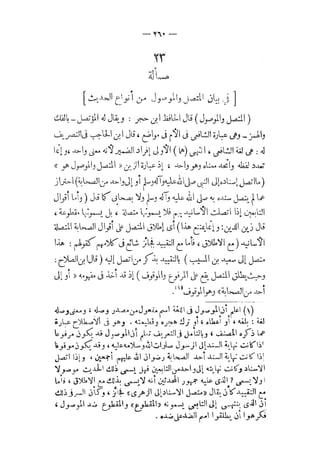 — ٢٦٠ —
٢٣
مسألة
[ في بيان المتصل والموصول من أنواع الحديث ]
( المتصل والموصول ) قال الحافظ ابن حجر : ويقال له المؤتصل – بالفك
والهمز – وهي عبارة الشافعي في الأم في مواضع ، قال ابن الحاجب في التصريف
له : هي لغة الشافعي ، انتهى ( هما ) الأولى إفراد الضمير لأنه معنى واحد ، وإذا
تعدد لفظه واتحد معناه وهو واحد ، إذ عبارة الزين « المتصل والموصول هو »
( ما اتصل إسناده إلى النبي صلى الله عليه وآله وسلم أو إلى واحد من الصحابة ) احتراز
عما لم يتصل سنده به صلى الله عليه وآله وسلم ولا بصحابي كما قال ( وأما أقوال
التابعين إذا اتصلت الأسانيد بهم فلا يسمونها متصلة ، بل يسمونها مقطوعة ،
قال زين الدين : وإنما يمتنع هذا ) أي إطلاق المتصل على أقوال الصحابة المتصلة
الأسانيد ( مع الإطلاق ، فأما مع التقييد فجائز شائع في كلامهم كقولهم : هذا
متصل إلى سعيد بن المسيب ) بالتقييد بذكر من اتصل إليه ( قال ابن الصلاح :
وحيث يطلق المتصل يقع على المرفوع والموقوف ) إذ قد أخذ في مفهومه « أو إلى
أحد من الصحابة » وهو الموقوف (١) .
(١) اعلم أن الموصول في اللغة اسم مفعول من مصدر وصله ، ومعنى وصله
لغة : بلغه ، أو أعطاه ، أو ترك هجره وقطيعته . وهو في الاصطلاح عبارة
عما ذكره المصنف ، وبالتأمل في التعريف تعلم أن الموصول قد يكون مرفوعا
إذا كانت نهاية السند إلى الرسول صلوات الله وسلامه عليه ، وقد يكون موقوفا
إذا كانت نهاية السند أحد الصحابة رضوان الله عليهم أجمعين ، وإذا اتصل
الإسناد وكانت نهايته إلى واحد من التابعين فهل يسمى ذلك الحديث موصولا
أو لا يسمى ؟ الذي عليه جمهور المحدثين أنه لا يسمى بذلك مع الإطلاق ، فأما
مع التقييد كأن يقال « متصل الإسناد إلى الزهري » فجائز ، وكأن السر في ذلك
أن الذي ينتهي إلى التابعي يسمونه « المقطوع » والمقطوع ضد الموصول ،
فكرهوا أن يطلقوا اسم الضد على ضده .